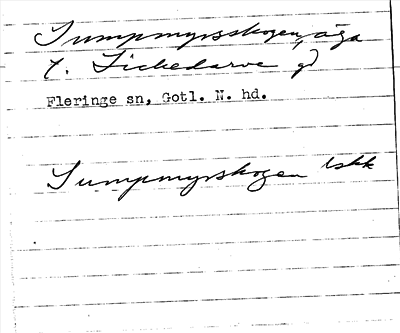 Sumpmyrsskogen, äga
t. Lickedarve gd
Fleringe sn, Gotl. N. hd.
Sumpmyrskogen lskk